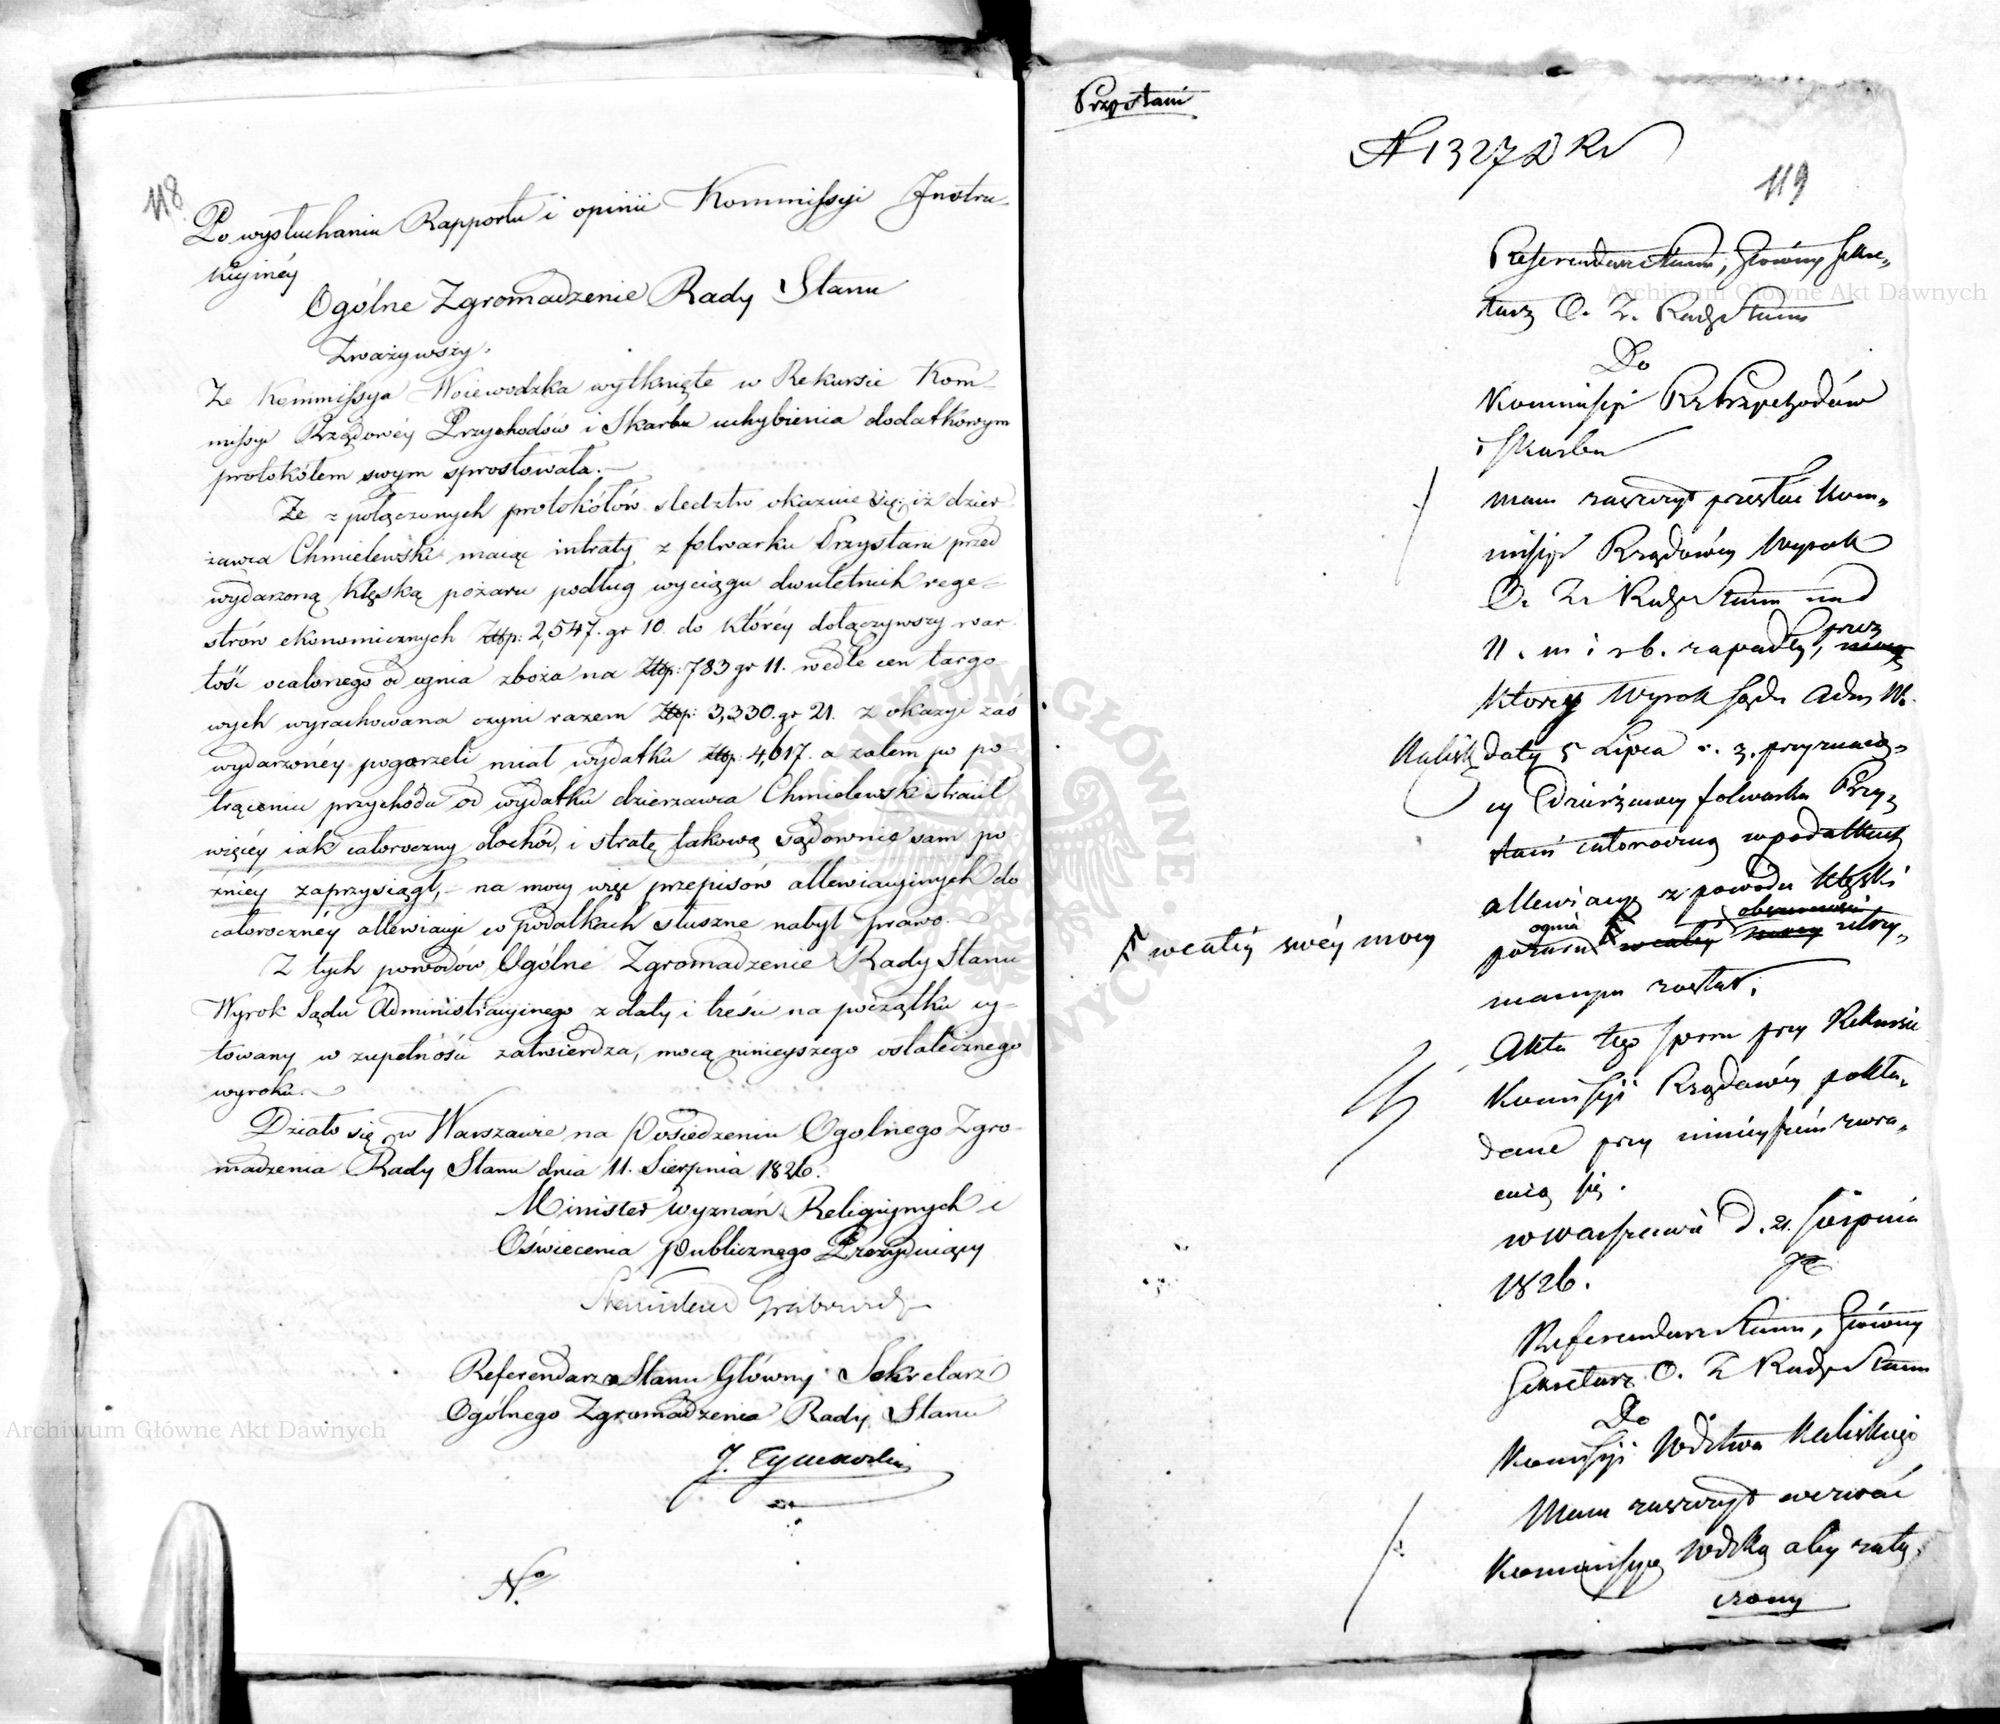 118
Po wysłuchaniu Rapportu i opinii Kommissyi Instru-
kcyinéy
Ogólne Zgromadzenie Rady Stanu
Zważywszy.
Ze Kommissya Woiewodzka wytknięte w Rekursie Kom-
missyi Rządowéy Przychodów i Skarbu uchybienia dodatkowym
protokółem swym sprostowała.—
Ze z połączonych protokółów sledztw okazuie się, iż dzier-
żawca Chmielewski maiąc intraty z folwarku Przystani przed
wydarzoną klęską pożaru podług wyciągu dwuletnich rege-
strów ekonomicznych Złłp: 2,547. gr 10. do któréy dołączywszy war-
tość ocalonego od ognia zboża na Złłp: 783 gr 11. wedle cen targo
wych wyrachowana czyni razem Złłp: 3,330. gr 21. z okazyi zaś
wydarzonéy pogorzeli miał wydatku Złłp: 4,617. a zatem po po-
trąceniu przychodu od wydatku dzierzawca Chmielewski stracił
więcéy iak całoroczny dochód, i stratę takową sądownie sam po
źniéy zaprzysiągł,— na mocy więc przepisów allewiacyinych do
całorocznéy allewiacyi w podatkach słuszne nabył prawo.—
Z tych powodów Ogólne Zgromadzenie Rady Stanu
Wyrok Sądu Administracyinego z daty i treści na początku cy-
towany w zupełności zatwierdza, mocą ninieyszego ostatecznego
wyroku.—
Działo się w Warszawie na Posiedzeniu Ogolnego Zgro-
madzenia Rady Stanu dnia 11. Sierpnia 1826.
Minister Wyznań Religiynych i
Oświecenia Publicznego Prezyduiący
Stanisław Grabowski
Referendarz Stanu Główny Sekretarz
Ogólnego Zgromadzenia Rady Stanu
J. Tymowski
No
Przystań
N 1327 D R
119
Referendarz Stanu, Główny Sekre-
tarz O. Z. Rady Stanu
Do
Kommissyi Rz Przychodów
i Skarbu
Mam zaszczyt przesłać Kom-
missyi Rządowéy Wyrok
O. Z. Rady Stanu pod
11. m i r b. zapadły, przez
który Wyrok Sądu Adm W.
Kalisk daty 5 Lipca r. z. przyznaią-
cy Dzierżawcy folwarku Przy-
stań całoroczną w podatkach
allewiacyą z powodu klęski
ognia
pożaru
w całéy swéy mocy
utrzy-
manym został.
Akta tego sporu przy Rekursie
Komissyi Rządowéy pokła-
dane przy ninieyszém zwra-
caią się.
w Warszawie d. 21. Sierpnia
1826.
Referendarz Stanu, Główny
Sekretarz O. Z Rady Stanu
Do
Komissyi Wdztwa Kaliskiego
Mam zaszczyt wezwać
Kommissyą Wdzką aby załą-
czony
Archiwum Główne Akt Dawnych
Archiwum Główne Akt Dawnych
ARCHIWUM GŁÓWNE AKT DAWNYCH